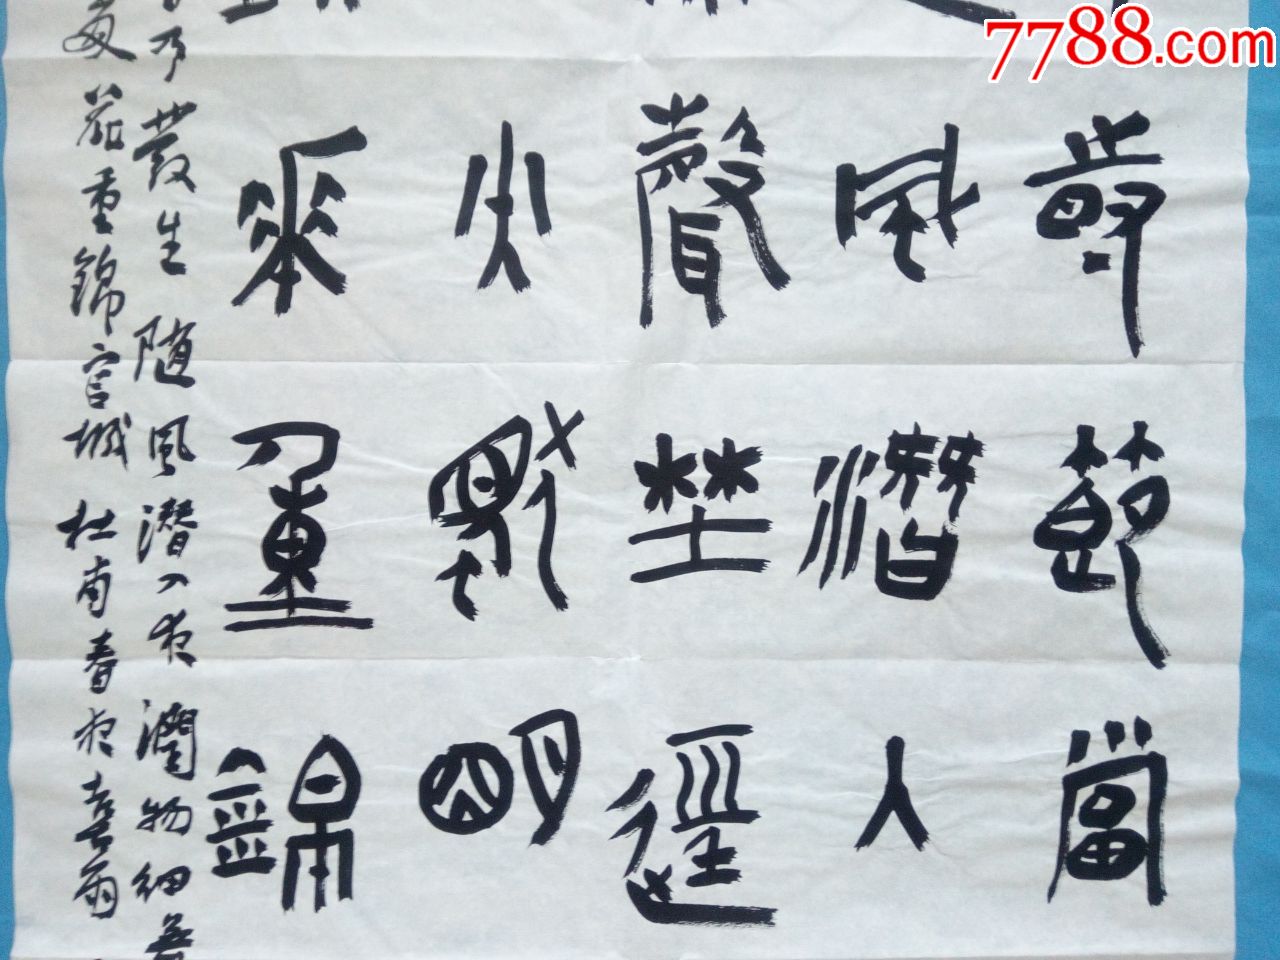 7788.com
時節當
風潛入
聲埜徑
火獨明
華重錦
乃發生随風潜入夜潤物細無
花重錦官城 杜甫春夜喜雨